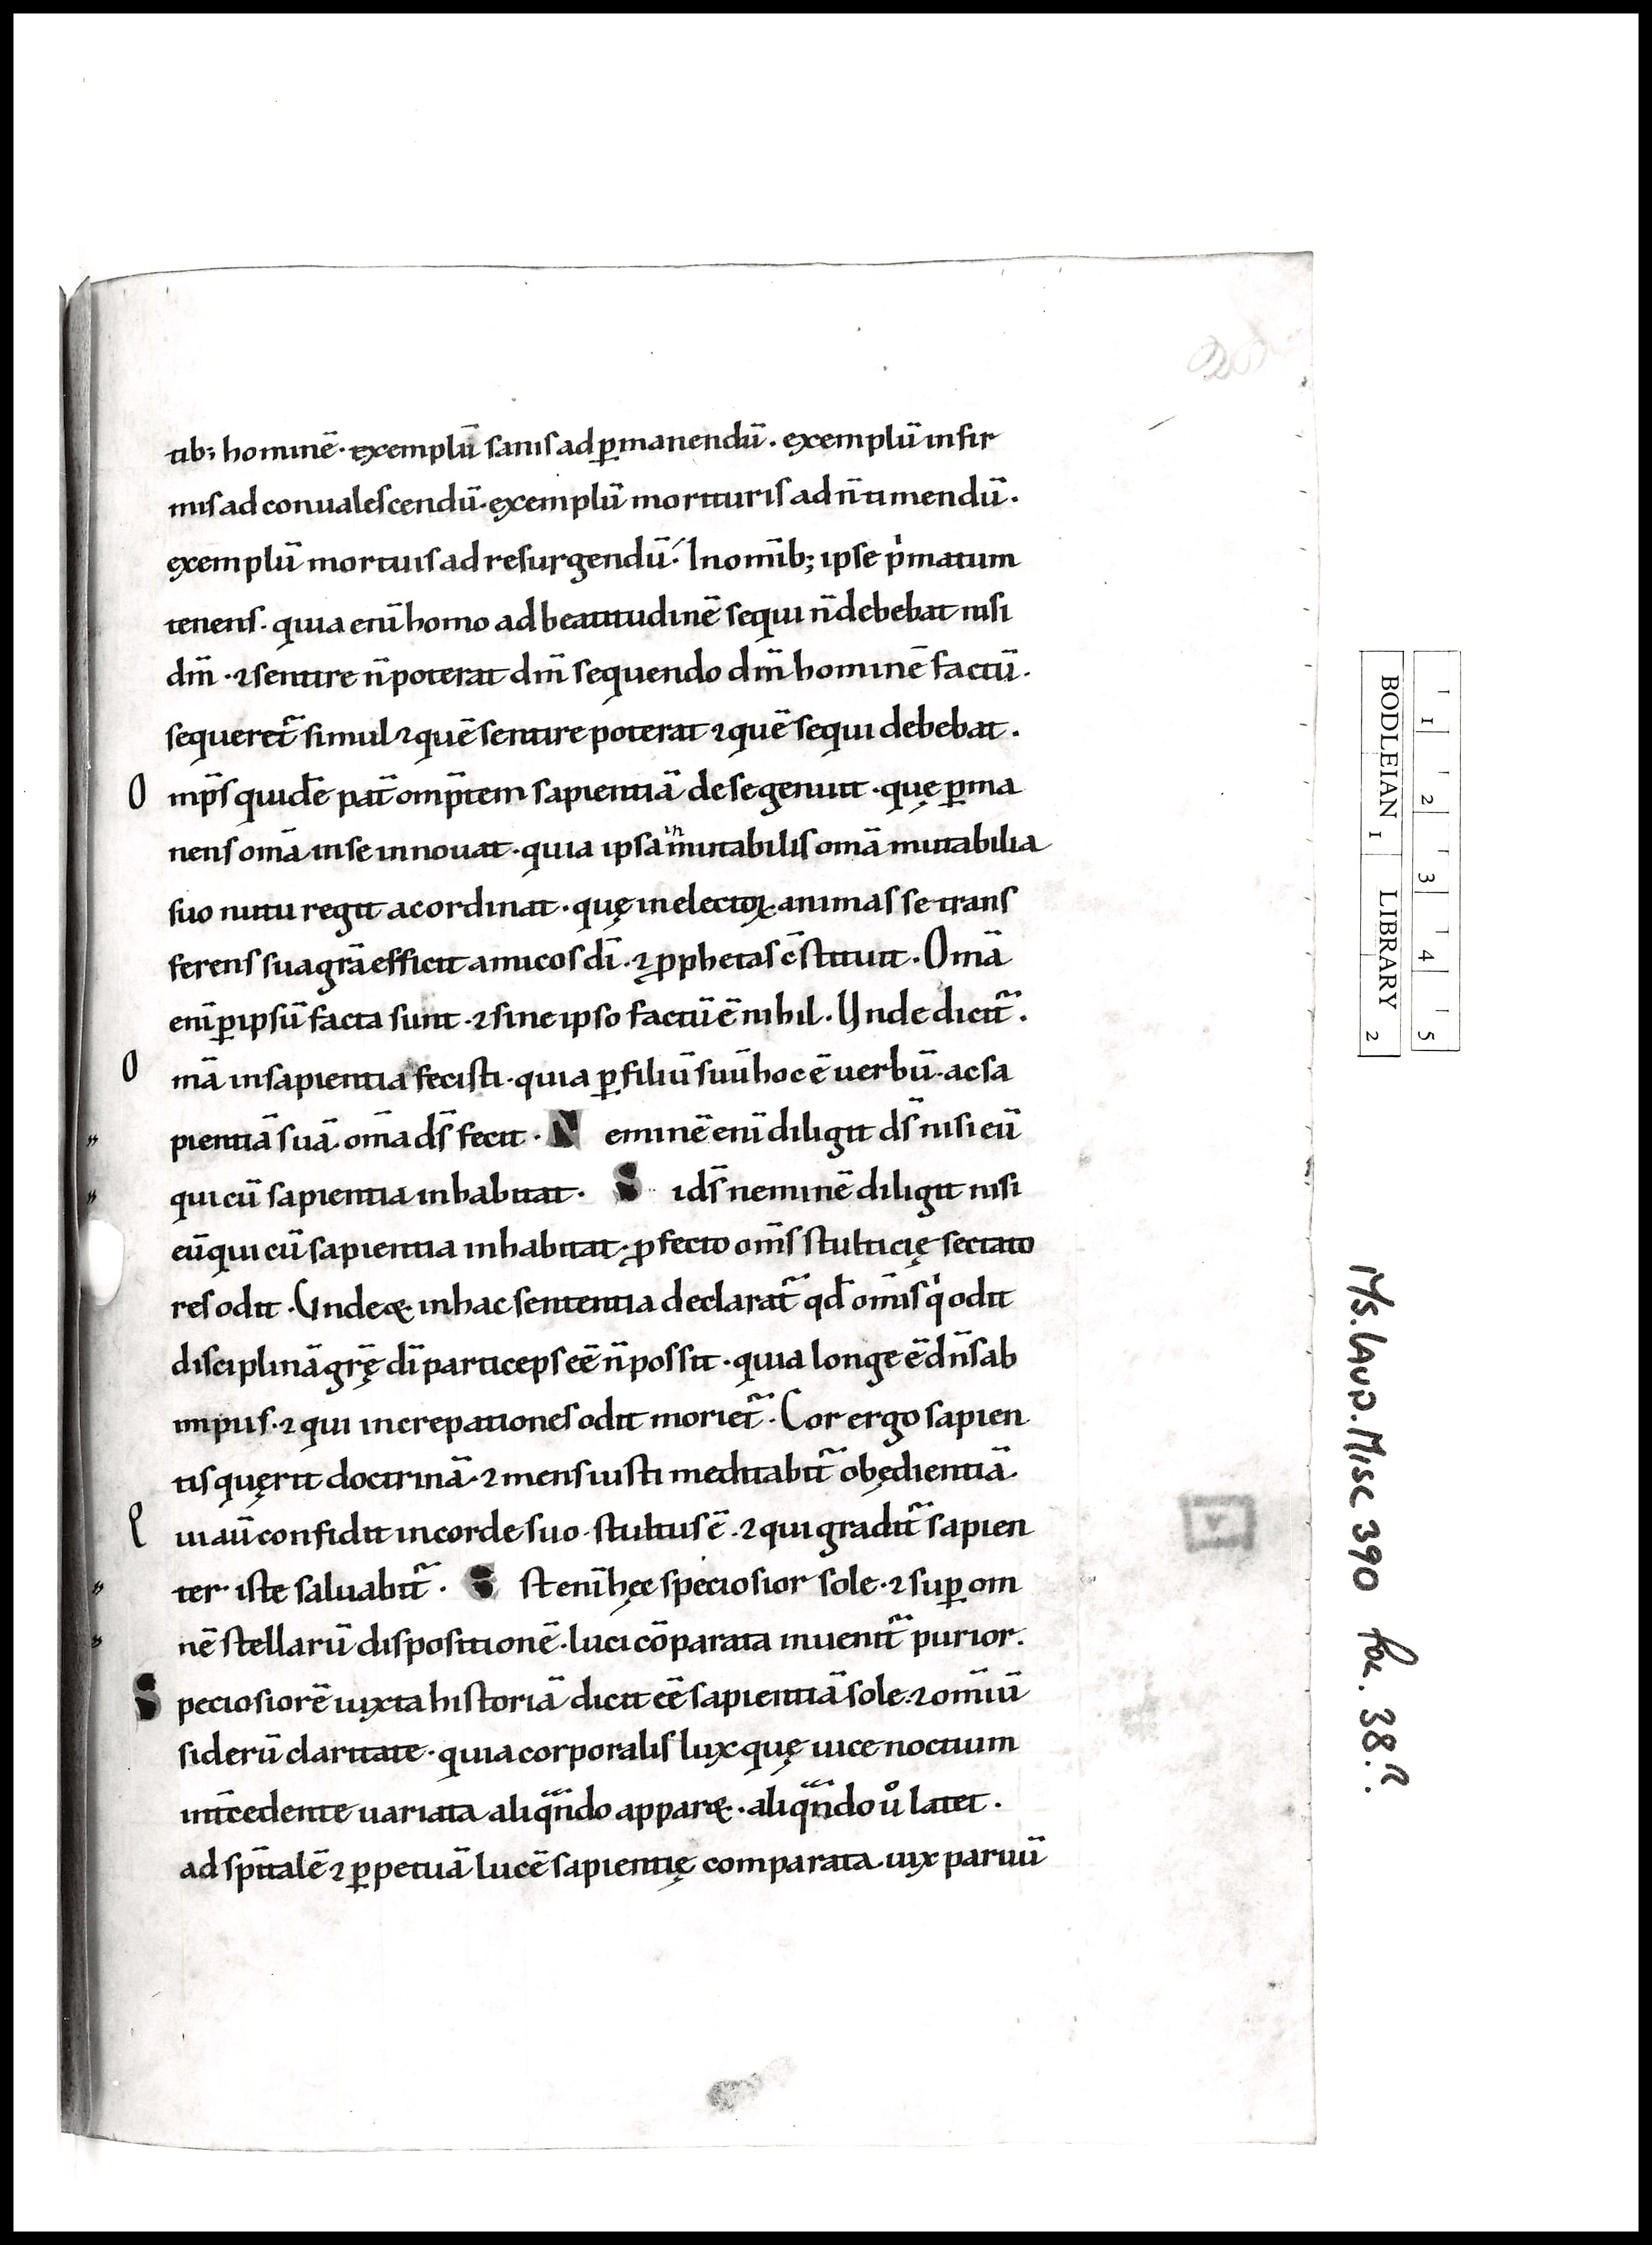 tib; hominē · exemplū sanis ad ꝑmanendū · exemplū infir
mis ad conualescendū · exemplū morituris ad n̄ timendū ·
exemplū mortuis ad resurgendū · In om̄ib; ipse pͥmatum
tenens · quia eni̅ homo ad beatitudinē sequi n̄ debebat nisi
dm̄ · ⁊ sentire n̄ poterat dm̄ sequendo dm̄ hominē factū ·
sequeret᷑ simul ⁊ quē sentire poterat ⁊ quē sequi debebat ·
Omp̄s quidē pat̄ omp̄tem sapientiā de se genuit · quę ꝑma
nens om̄a in se innouat · quia ipsa inmutabilis om̄a mutabilia
suo nutu regit ac ordinat · quę in electoꝝ animas se trans
ferens sua gr̄a efficit amicos dī · ⁊ ꝓphetas c̄stituit · Om̄a
eni̅ ꝑ ipsū facta sunt · ⁊ sine ipso factū ē nihil · Unde dicit᷑ ·
Om̄a in sapientia fecisti · quia ꝑ filiū suū hoc ē uerbū · ac sa
pientiā suā om̄a ds̄ fecit · Neminē eni̅ diligit ds̄ nisi eū
qui cū sapientia inhabitat · Si ds̄ neminē diligit nisi
eū qui cū sapientia inhabitat · ꝓfecto om̄s stulticię sectato
res odit · Unde & in hac sententia declarat᷑ qd̄ om̄is qͥ odit
disciplinā gr̄ę dī particeps eē n̄ possit · quia longe ē dn̄s ab
impiis · ⁊ qui increpationes odit moriet᷑ · Cor ergo sapien
tis quęrit doctrinā · ⁊ mens iusti meditabit᷑ obędientiā ·
Qui au̅ confidit in corde suo · stultus ē · ⁊ qui gradit᷑ sapien
ter iste saluabit᷑ · Est eni̅ hęc speciosior sole · ⁊ suꝑ om
nē stellarū dispositionē · luci cōparata inuenit᷑ purior ·
Speciosiorē iuxta historiā dicit eē sapientiā sole · ⁊ om̄iū
siderū claritate · quia corporalis lux quę uice noctium
int̄cedente uariata aliqn̄do appar& · aliqn̄do uͦ latet ·
ad sp̄italē ⁊ ꝑpetuā lucē sapientię comparata uix paruū
BODLEIAN LIBRARY
1 2
1 2 3 4 5
Ms. Laud. Misc 390 fol. 38.r.